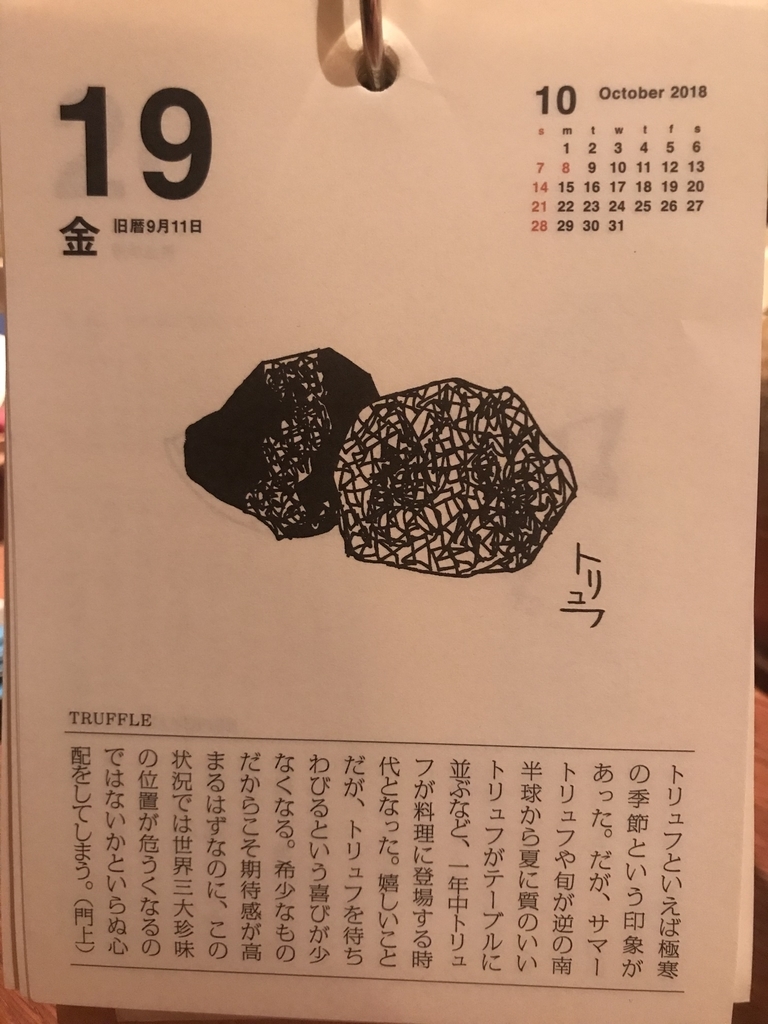 19
金
旧暦9月11日
10 October 2018
s m t w t f s
1 2 3 4 5 6
7 8 9 10 11 12 13
14 15 16 17 18 19 20
21 22 23 24 25 26 27
28 29 30 31
トリュフ
TRUFFLE
トリュフといえば極寒
の季節という印象が
あった。だが、サマー
トリュフや旬が逆の南
半球から夏に質のいい
トリュフがテーブルに
並ぶなど、一年中トリュ
フが料理に登場する時
代となった。嬉しいこと
だが、トリュフを待ち
わびるという喜びが少
なくなる。希少なもの
だからこそ期待感が高
まるはずなのに、この
状況では世界三大珍味
の位置が危うくなるの
ではないかといらぬ心
配をしてしまう。（門上）